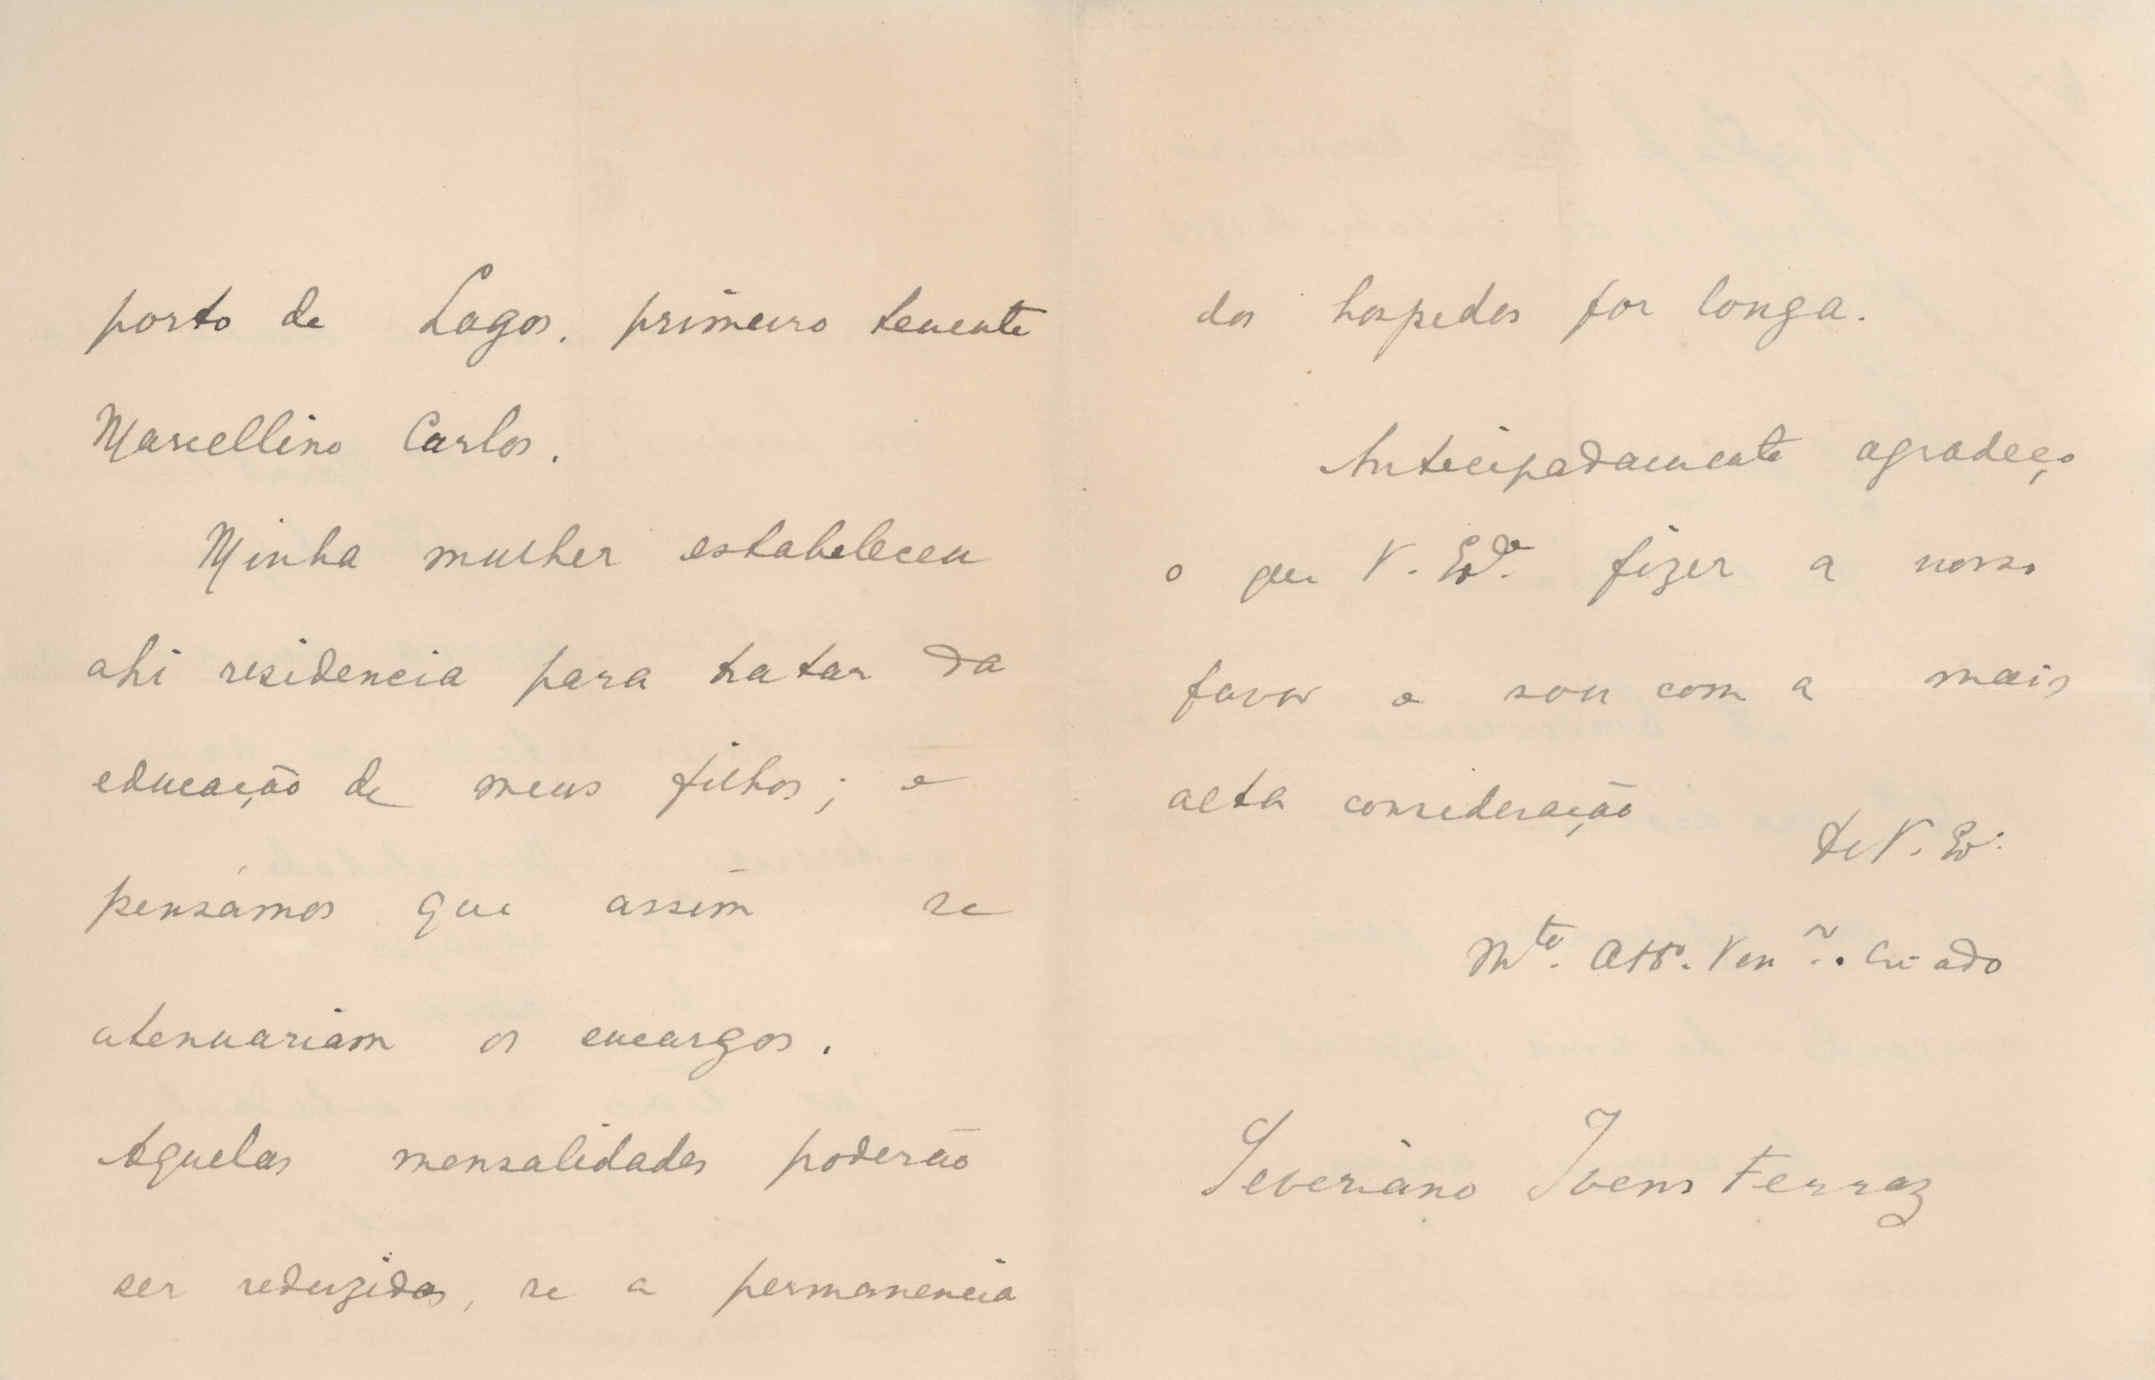 porto de Lagos, primeiro tenente
Marcellino Carlos.
Minha mulher estabeleceu
ahi residencia para tratar da
educação de meus filhos; e
pensámos que assim se
atenuariam os encargos.
Aquelas mensalidades poderão
ser reduzidas, se a permanencia
dos hospedes for longa.
Antecipadamente agradeço
o que V. Exª. fizer a nosso
favor e sou com a mais
alta consideração
de V. Exª.
Mto. Atto. Ven. Criado
Severiano Ivens Ferraz